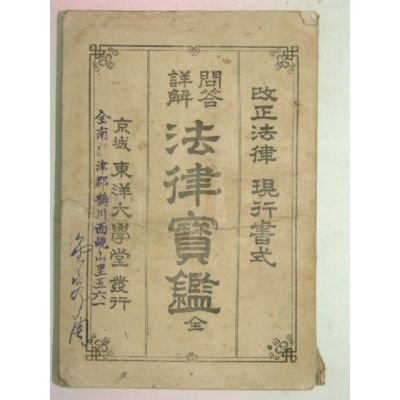 改正法律 現行書式
問答
詳解
法律寶鑑 全
京城 東洋大學堂 發行
全南 津郡鶴川面峴山里五六一